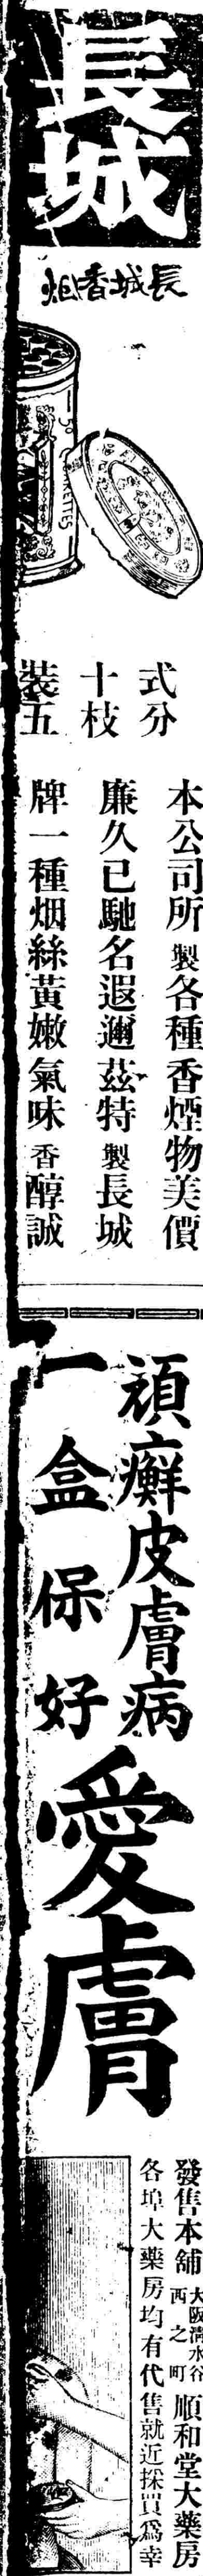 長城
長城香烟
50 CIGARETTES
式分
十枝
裝五
本公司所製各種香煙物美價
廉久已馳名遐邇茲特製長城
牌一種烟絲黃嫩氣味香醇誠
頑癬皮膚病
一盒保好
愛膚
發售本舖 大阪清水谷西之町 順和堂大藥房
各埠大藥房均有代售就近採買爲幸